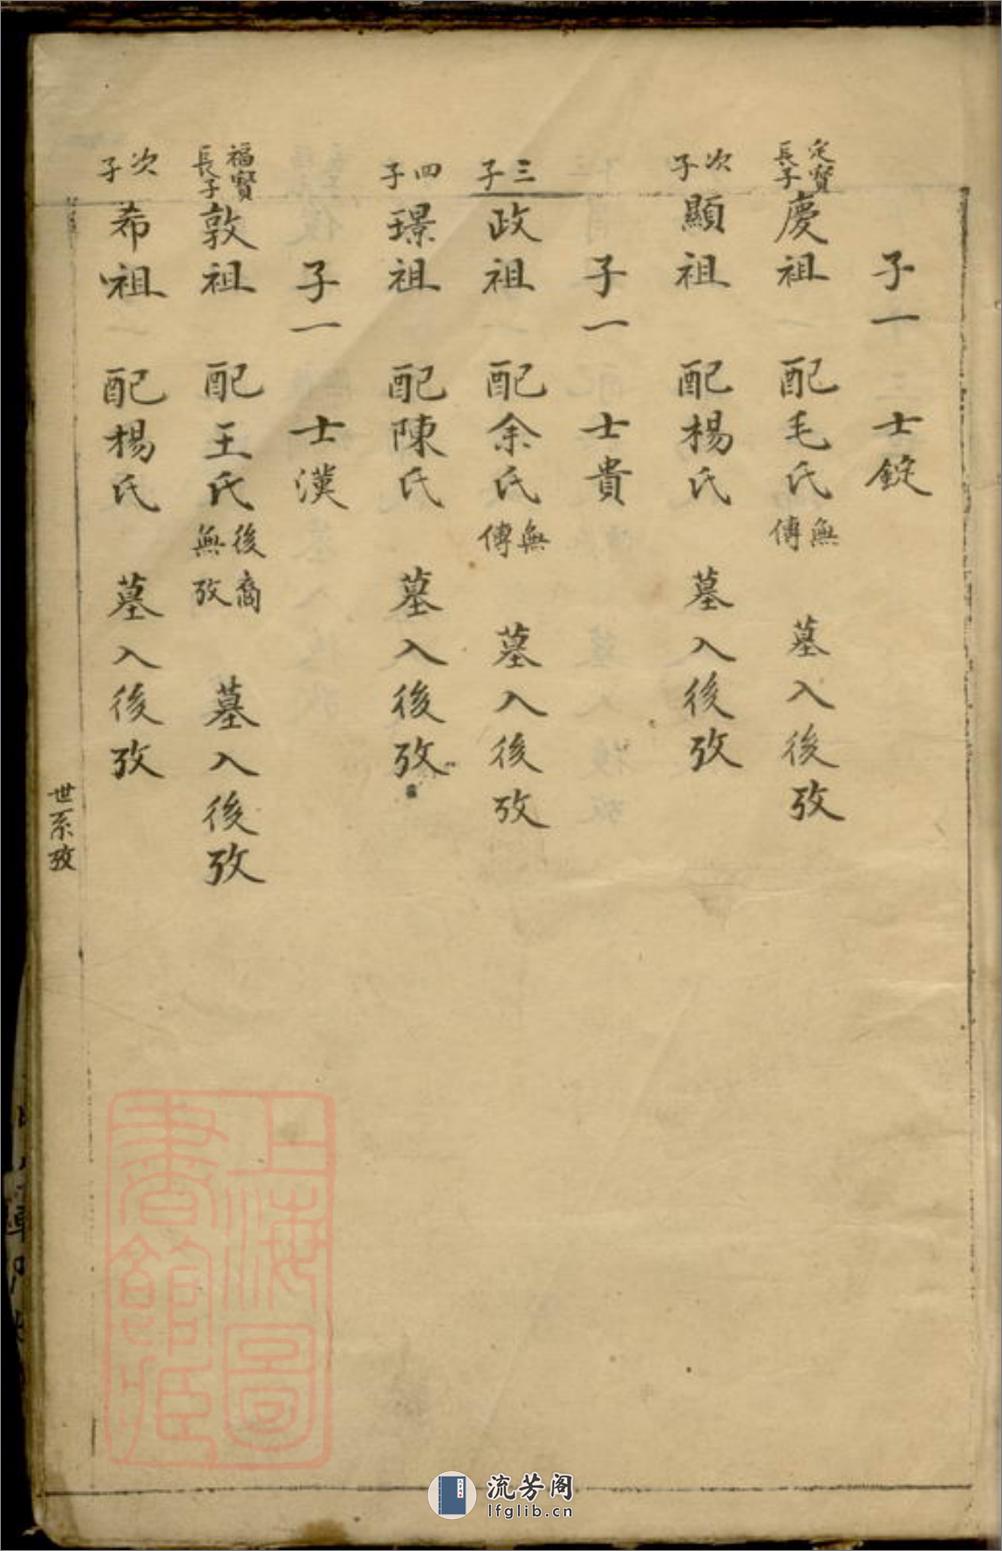 子一 士錠
定賢長子慶祖 配毛氏無傳 墓入後攷
次子顯祖 配楊氏 墓入後攷
子一 士貴
三子政祖 配余氏無傳 墓入後攷
四子璟祖 配陳氏 墓入後攷
子一 士漢
福賢長子敦祖 配王氏後裔無攷 墓入後攷
次子希祖 配楊氏 墓入後攷
世系攷
上海圖書館藏
流芳阁
lfglib.cn